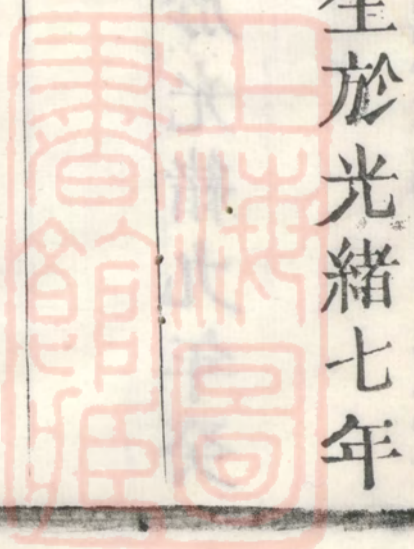 生於光緒七年
上海圖
書館藏